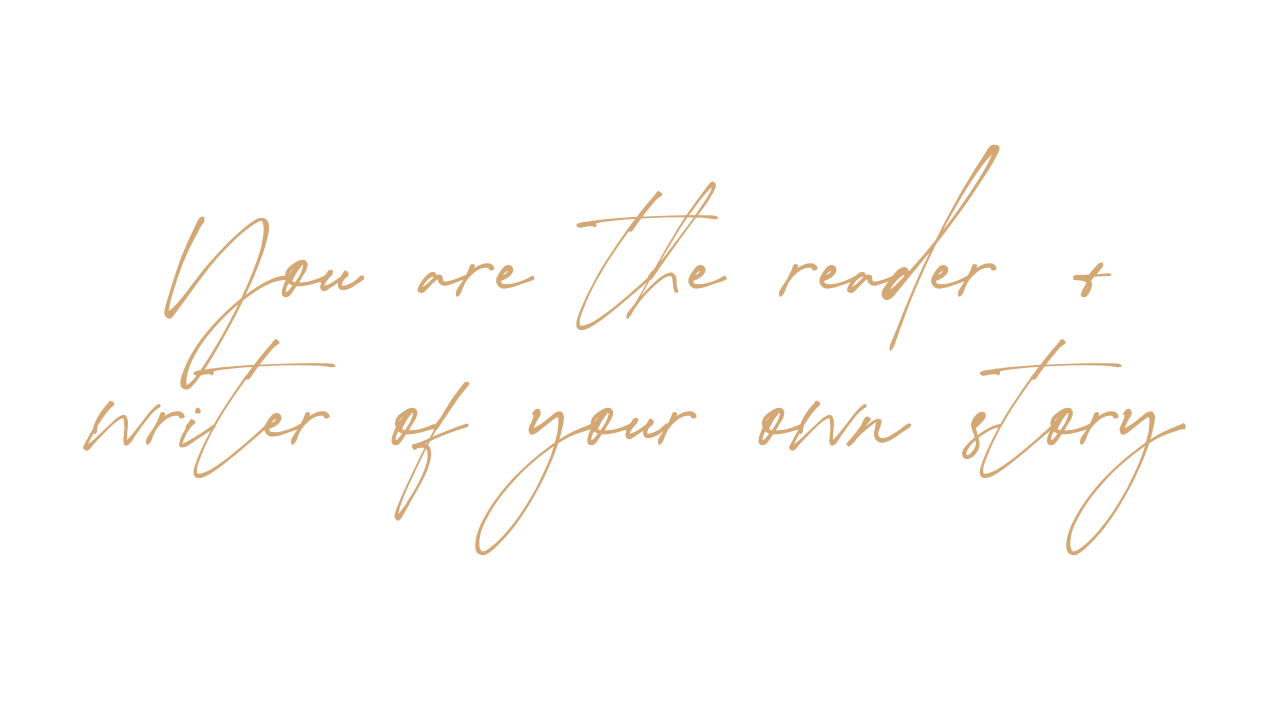 You are the reader +
writer of your own story